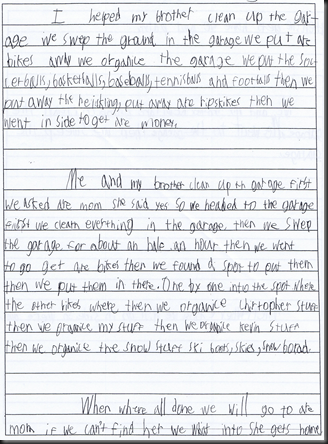 I helped my brother clean up the gar-
age we swep the ground in the garage we put are
bikes away we organice the garage we put the soc-
cerballs, basketballs, baseballs, tennisballs and footballs then we
put away the put away are ripskikes then we
went in side to get are money.
Me and my brother clean up th garage first
we asked are mom she said yes so we headed to the garage
first we clean everything in the garage, then we swep
the garage for about an hale an hour then we went
to go get are bikes then we found a spot to put them
then we put them in there. One by one into the spot where
the other bikes where then we organice Christopher stuff
then we organice my stuff then we organice kevin stuff
then we organice the snow stuff ski boots, skies, snow borad.
When where all done we will go to are
mom if we can't find her we wait into she gets home